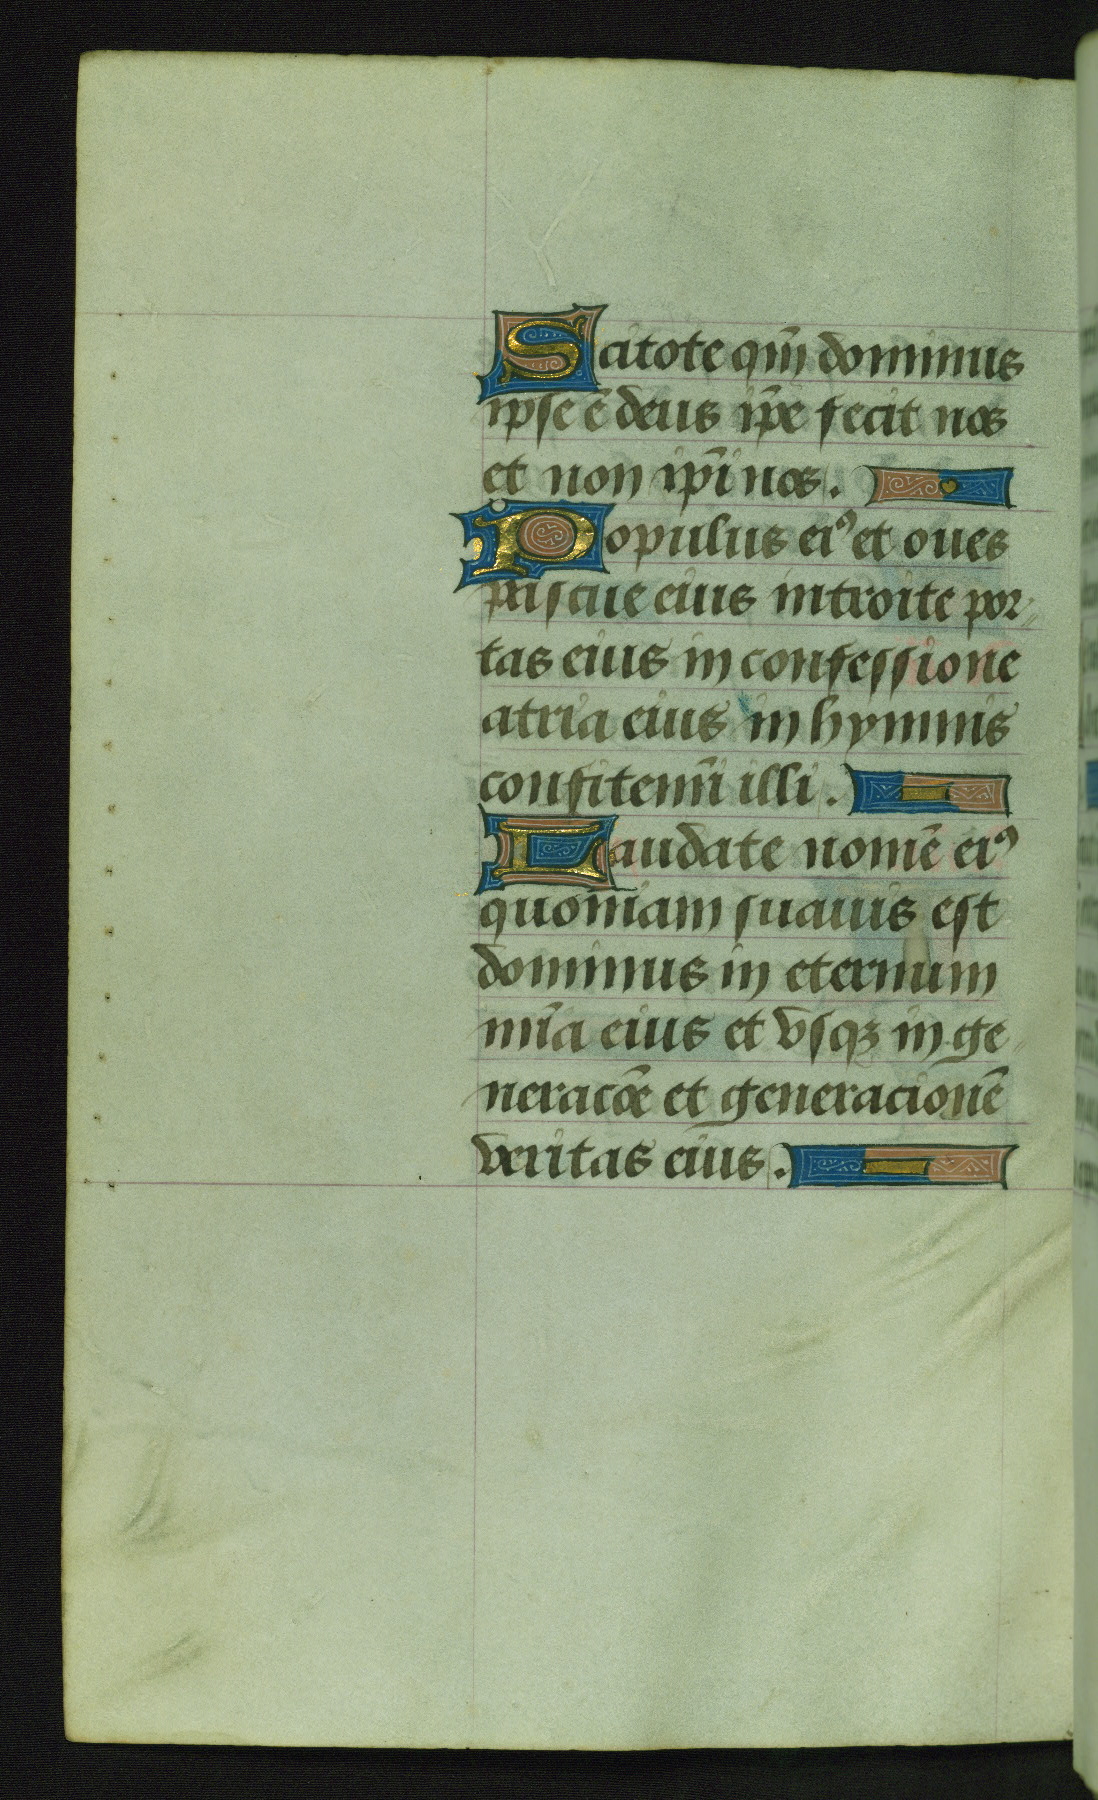 Scitote qm̄ dominus
ipse ē deus ip̄e fecit nos
et non ip̄i nos.
Populus eiꝰ et oues
pascue eius introite por
tas eius in confessione
atria eius in hymnis
confitemī illi.
Laudate nomē eiꝰ
quoniam suauis est
dominus in eternum
mīa eius et vsqꝫ in ge
neracōē et generacionē
veritas eius.